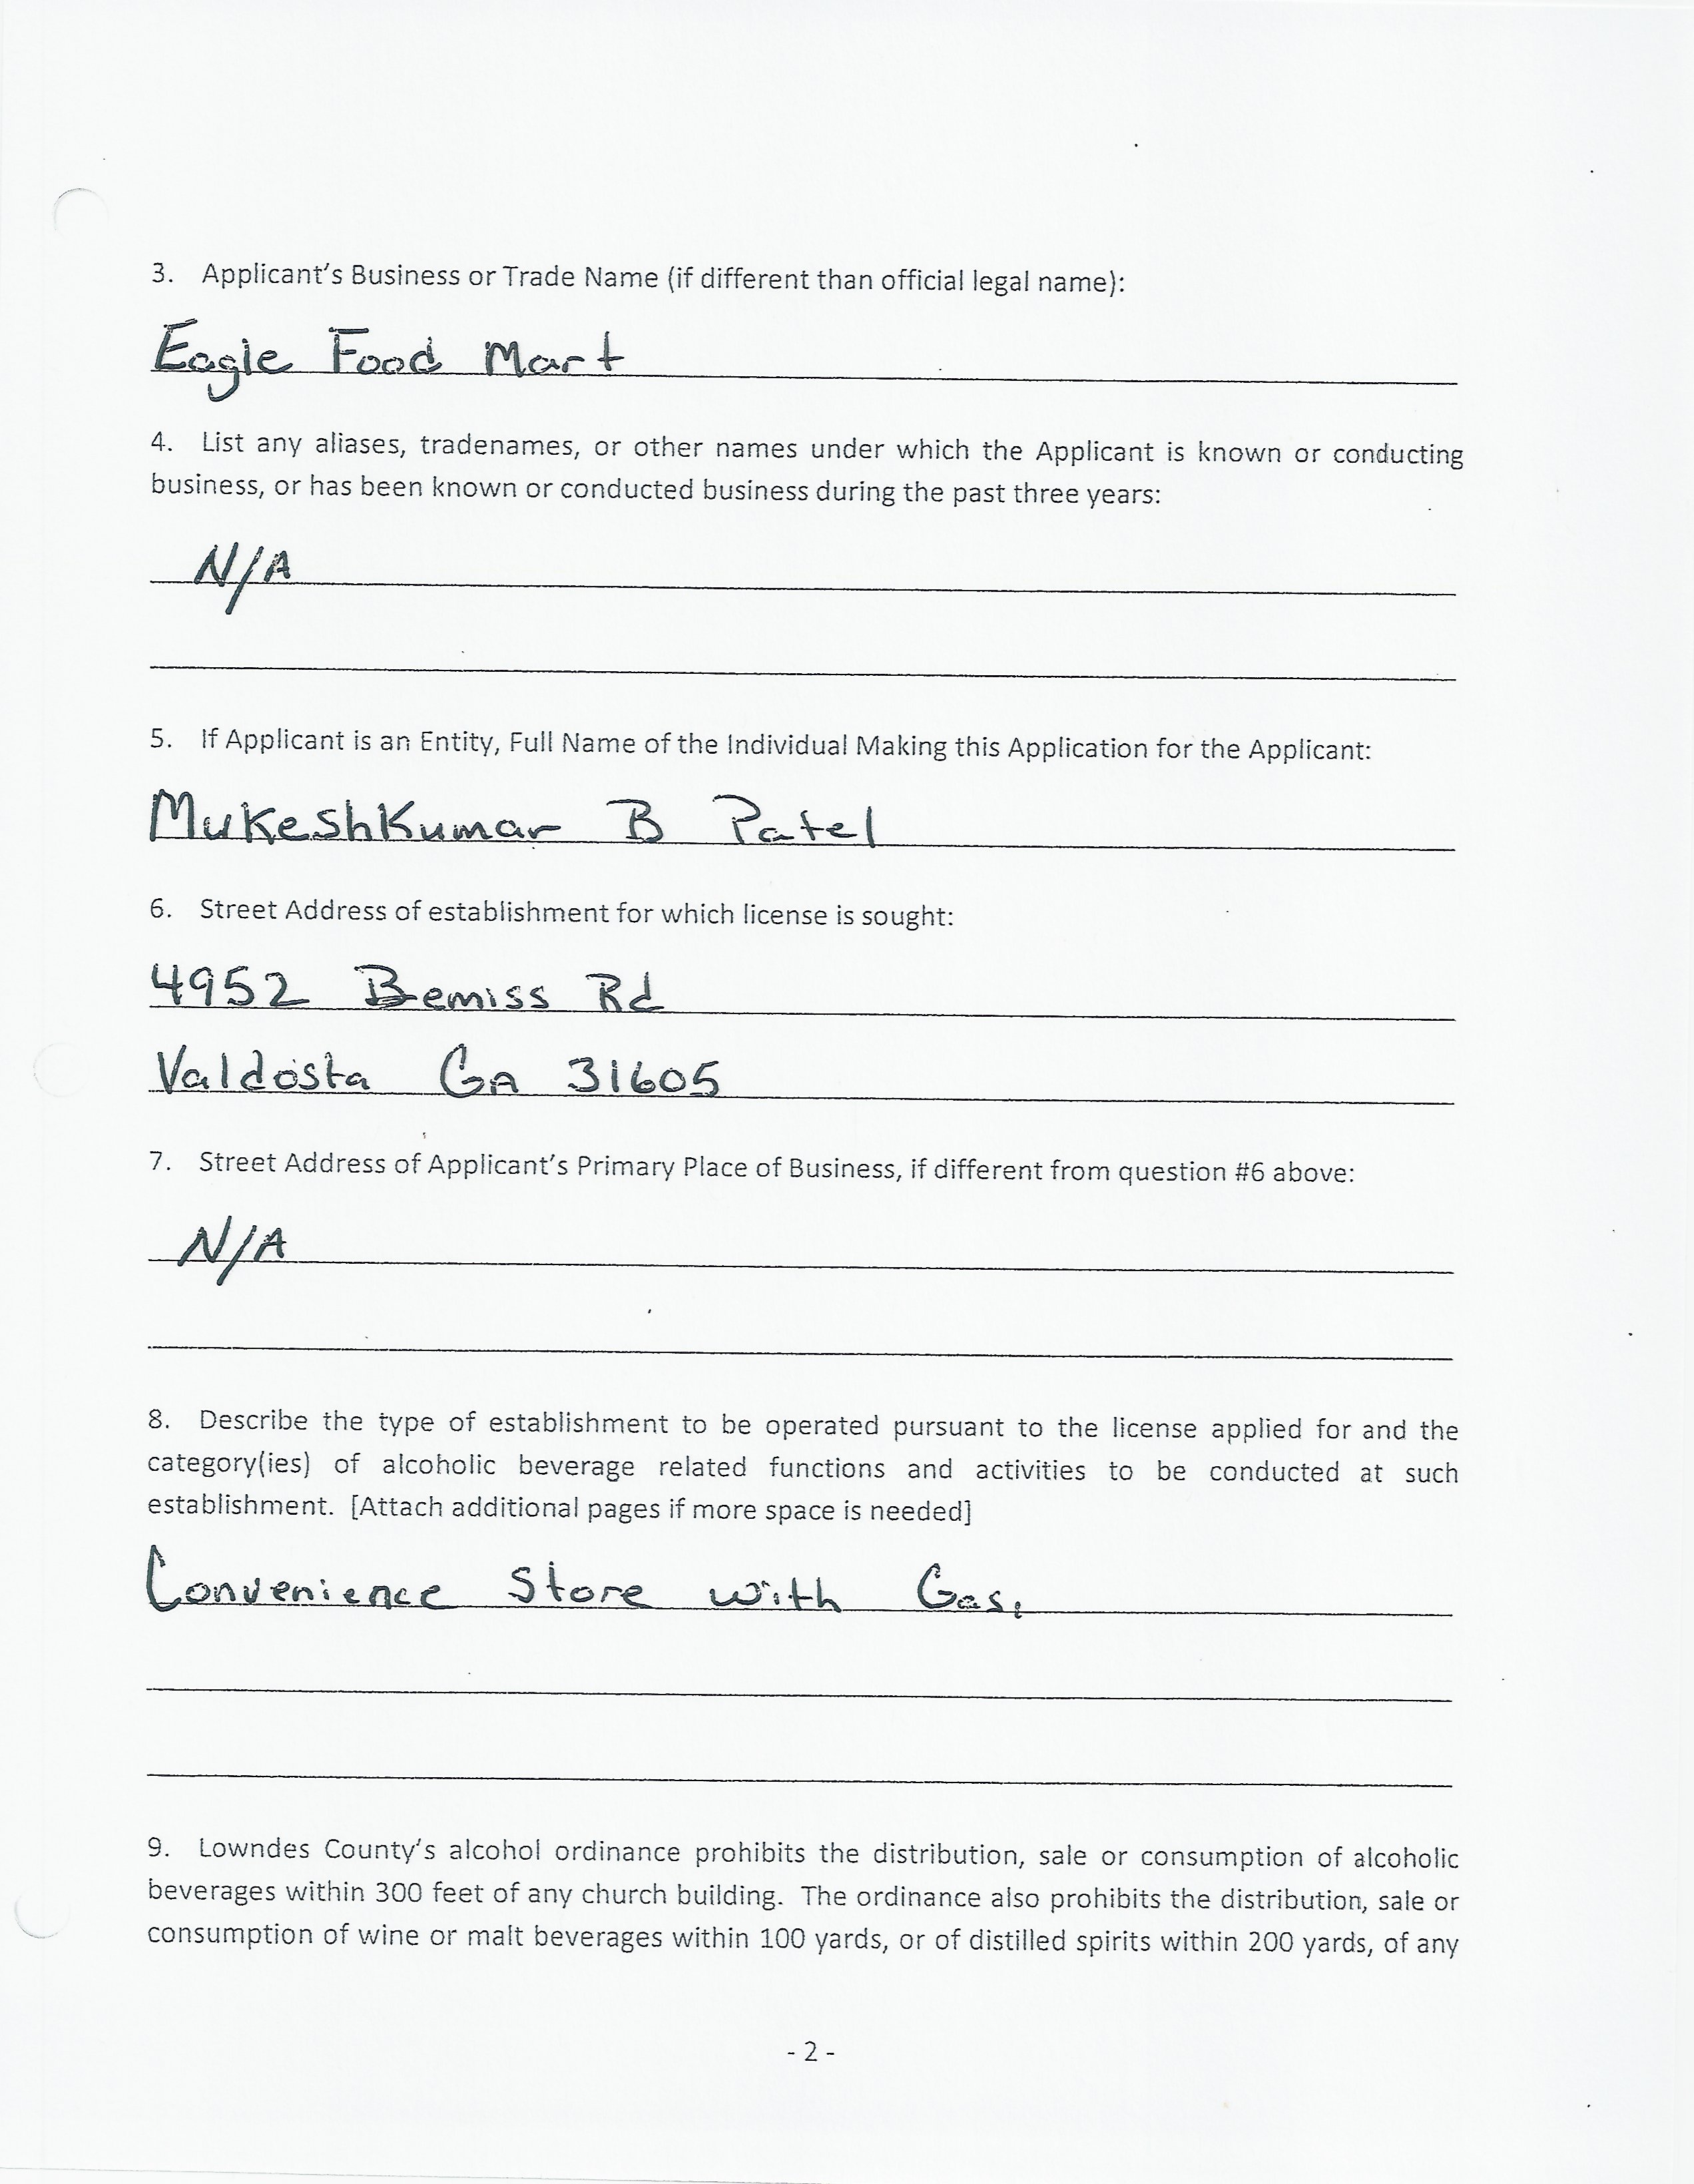 3. Applicant's Business or Trade Name (if different than official legal name):
Eagle Food Mart
4. List any aliases, tradenames, or other names under which the Applicant is known or conducting
business, or has been known or conducted business during the past three years:
N/A
5. If Applicant is an Entity, Full Name of the Individual Making this Application for the Applicant:
MukeshKumar B Patel
6. Street Address of establishment for which license is sought:
4952 Bemiss Rd
Valdosta GA 31605
7. Street Address of Applicant's Primary Place of Business, if different from question #6 above:
N/A
8. Describe the type of establishment to be operated pursuant to the license applied for and the
category(ies) of alcoholic beverage related functions and activities to be conducted at such
establishment. [Attach additional pages if more space is needed]
Convenience Store with Gas.
9. Lowndes County's alcohol ordinance prohibits the distribution, sale or consumption of alcoholic
beverages within 300 feet of any church building. The ordinance also prohibits the distribution, sale or
consumption of wine or malt beverages within 100 yards, or of distilled spirits within 200 yards, of any
- 2 -